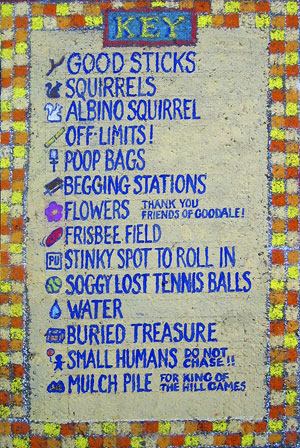 KEY
GOOD STICKS
SQUIRRELS
ALBINO SQUIRREL
OFF-LIMITS!
POOP BAGS
BEGGING STATIONS
FLOWERS THANK YOU FRIENDS OF GOODALE!
FRISBEE FIELD
PU STINKY SPOT TO ROLL IN
SOGGY LOST TENNIS BALLS
WATER
BURIED TREASURE
SMALL HUMANS DO NOT CHASE!!
MULCH PILE FOR KING OF THE HILL GAMES